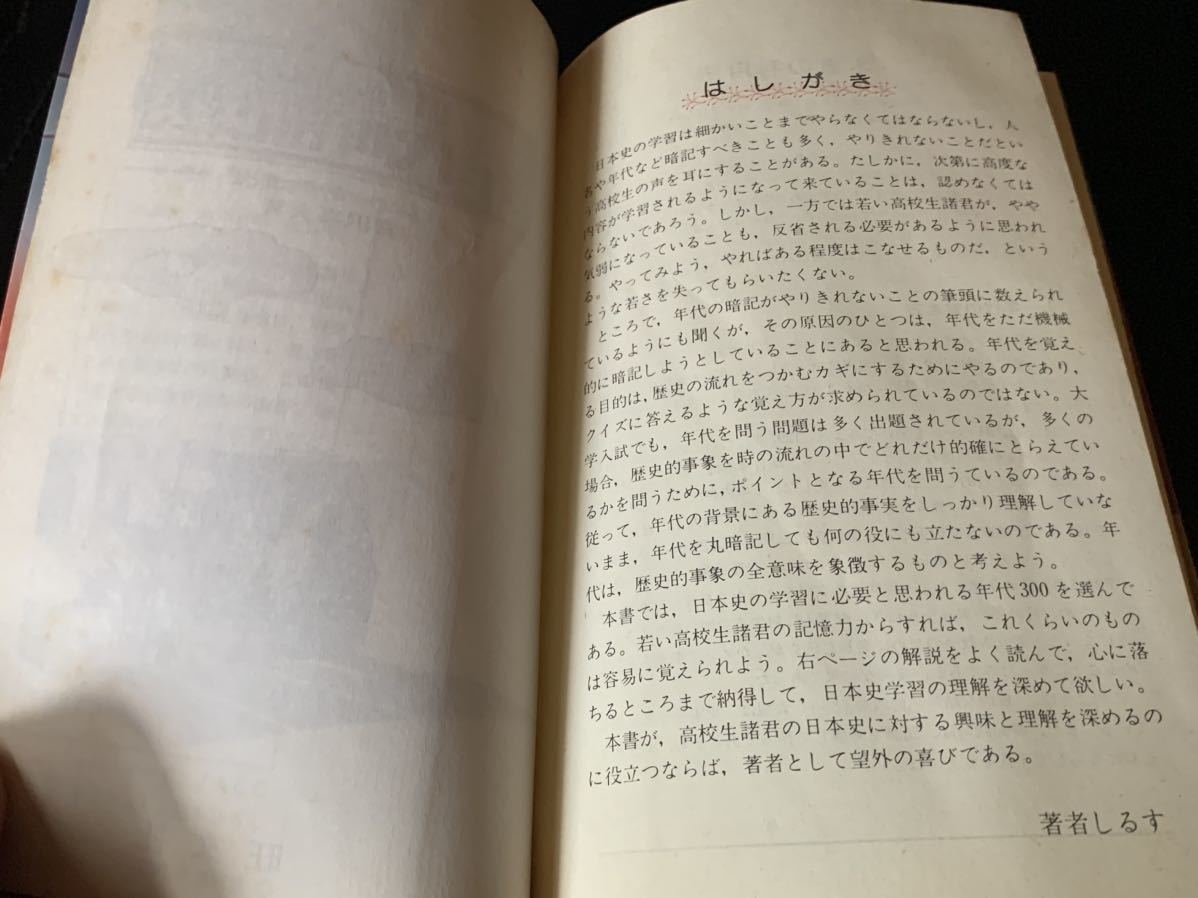 はしがき
日本史の学習は細かいことまでやらなくてはならないし，人
名や年代など暗記すべきことも多く，やりきれないことだとい
う高校生の声を耳にすることがある。たしかに，次第に高度な
内容が学習されるようになって来ていることは，認めなくては
ならないであろう。しかし，一方では若い高校生諸君が，やや
気弱になっていることも，反省される必要があるように思われ
る。やってみよう，やればある程度はこなせるものだ，という
ような若さを失ってもらいたくない。
ところで，年代の暗記がやりきれないことの筆頭に数えられ
ているようにも聞くが，その原因のひとつは，年代をただ機械
的に暗記しようとしていることにあると思われる。年代を覚え
る目的は，歴史の流れをつかむカギにするためにやるのであり，
クイズに答えるような覚え方が求められているのではない。大
学入試でも，年代を問う問題は多く出題されているが，多くの
場合，歴史的事象を時の流れの中でどれだけ的確にとらえてい
るかを問うために，ポイントとなる年代を問うているのである。
従って，年代の背景にある歴史的事実をしっかり理解していな
いまま，年代を丸暗記しても何の役にも立たないのである。年
代は，歴史的事象の全意味を象徴するものと考えよう。
本書では，日本史の学習に必要と思われる年代300を選んで
ある。若い高校生諸君の記憶力からすれば，これくらいのもの
は容易に覚えられよう。右ページの解説をよく読んで，心に落
ちるところまで納得して，日本史学習の理解を深めて欲しい。
本書が，高校生諸君の日本史に対する興味と理解を深めるの
に役立つならば，著者として望外の喜びである。
著者しるす